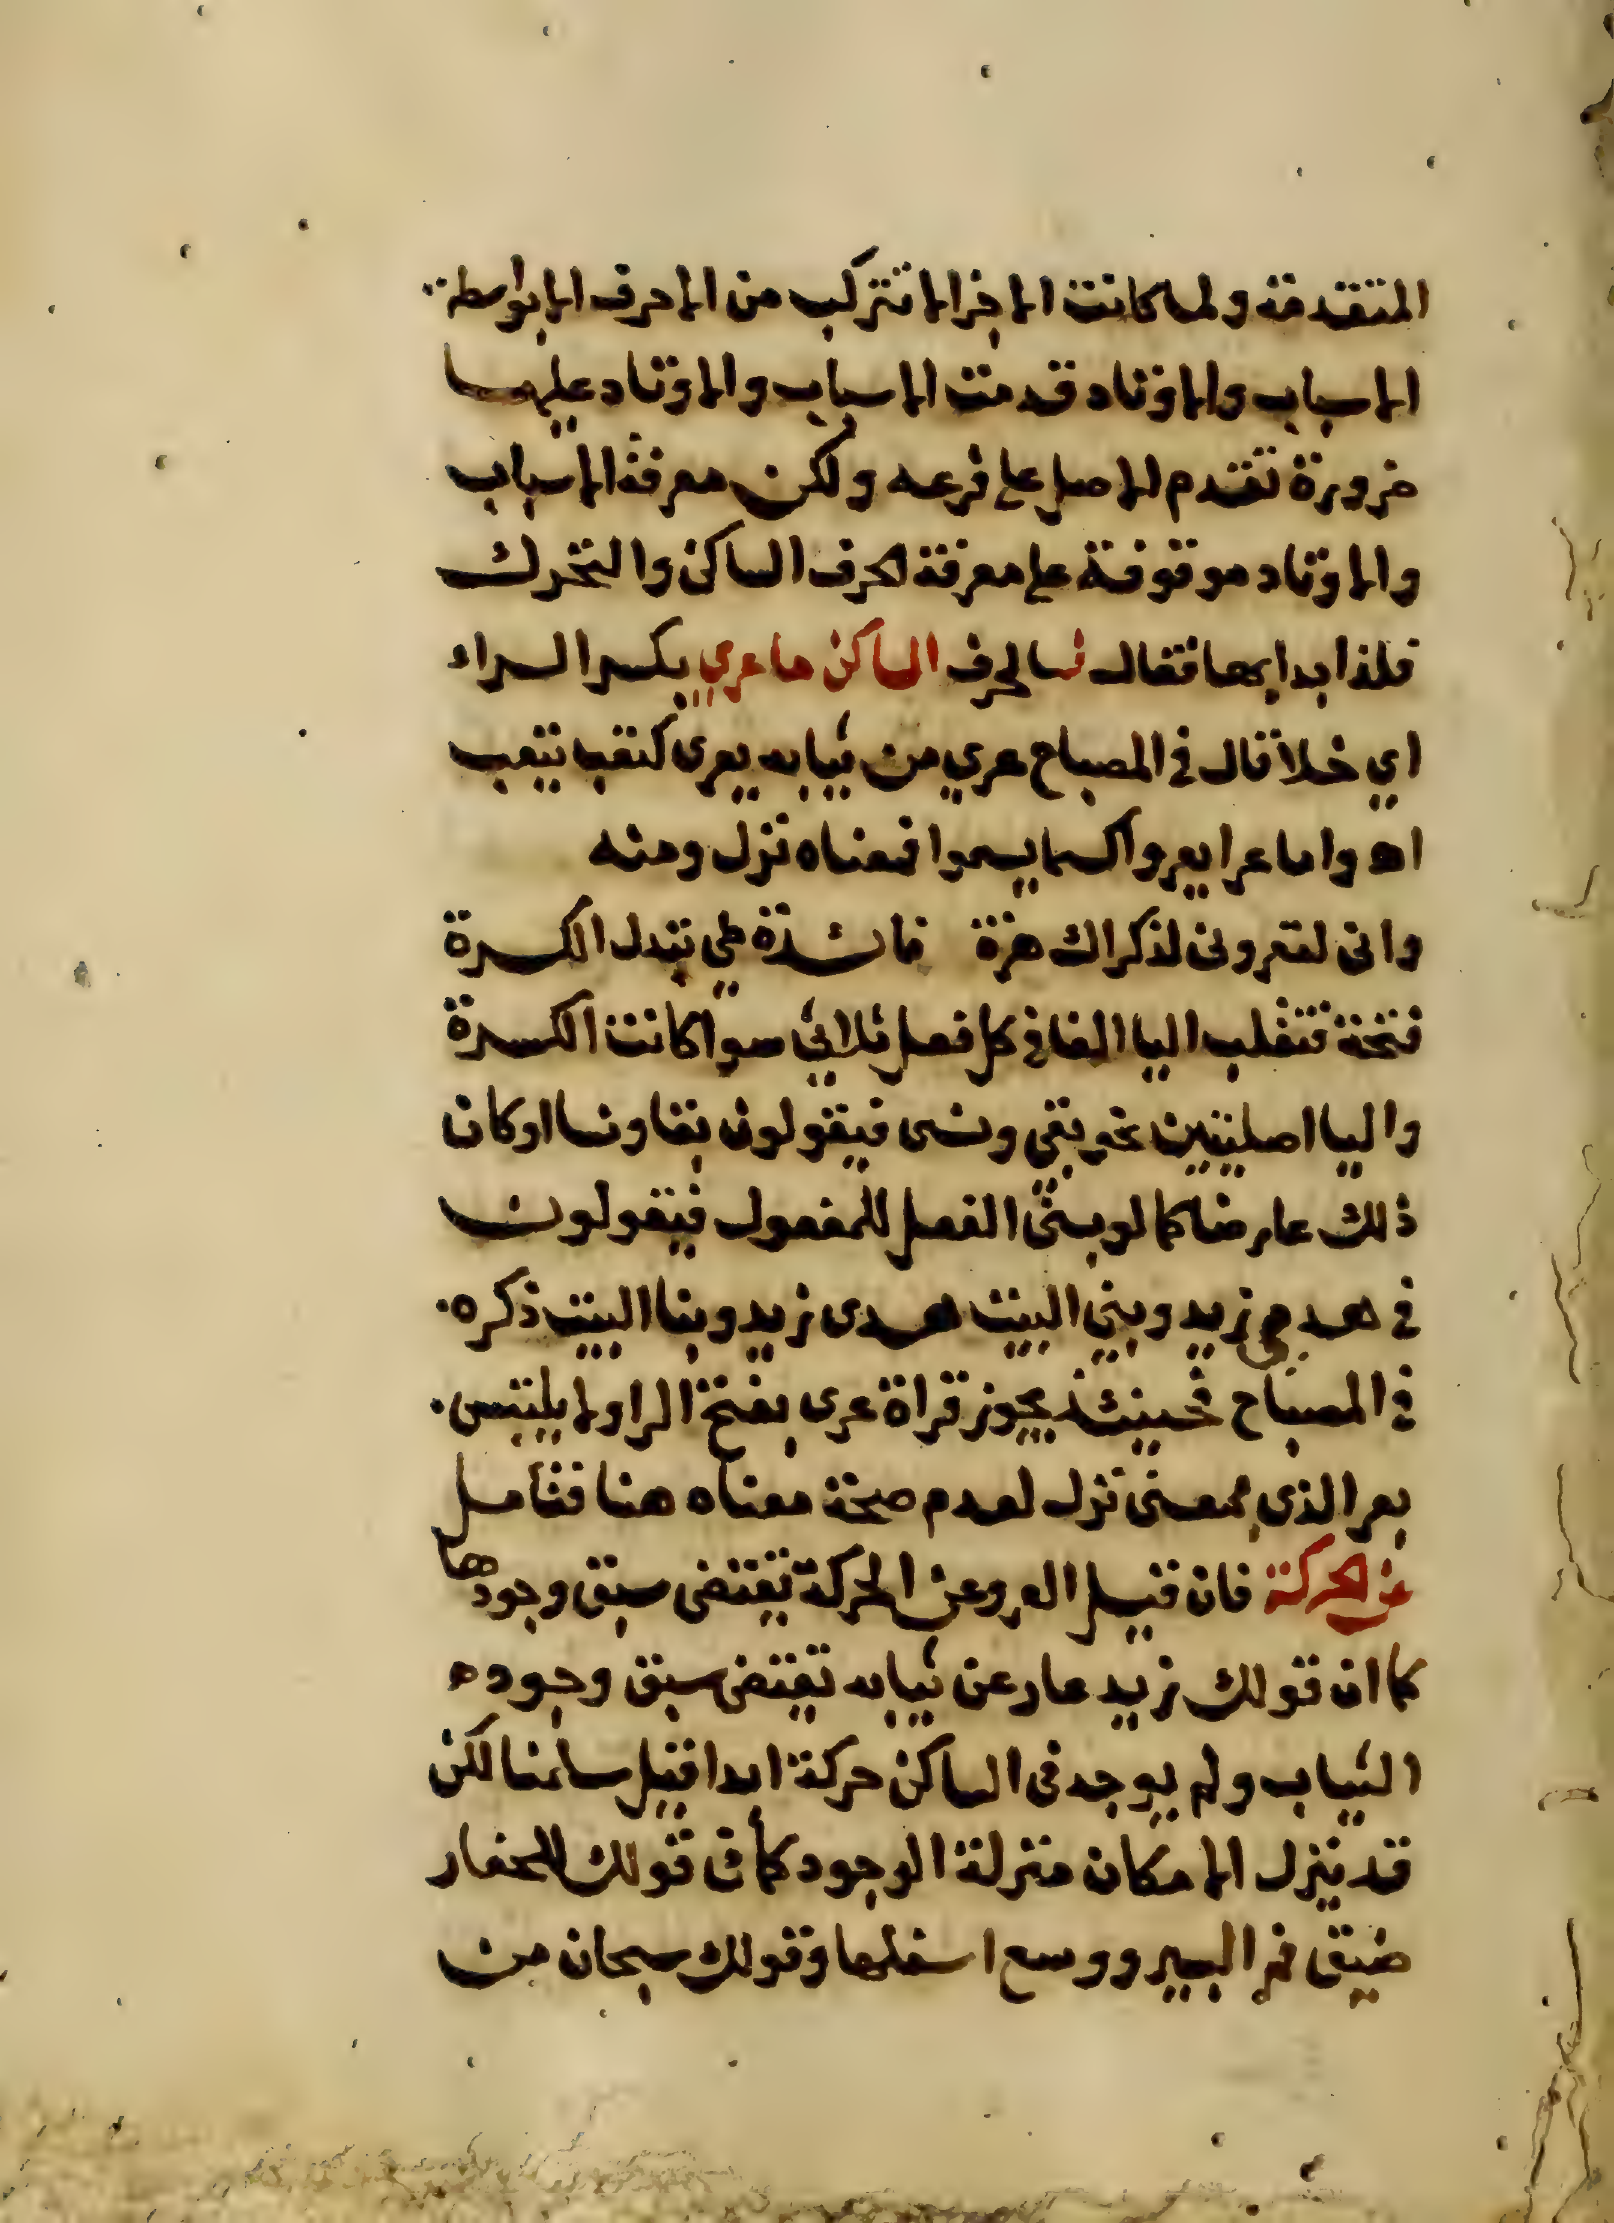 المتقدمة ولما كانت الاجزا لا تتركب من الاحرف الا بواسطة
الاسباب والاوتاد قدمت الاسباب والاوتاد عليهما
ضرورة تقدم الاصل على فرعه ولكن معرفة الاسباب
والاوتاد موقوفة على معرفة الحرف الساكن والمتحرك
فلذا بدا بهما فقال فالحرف الساكن ما عري بكسر الراء
اي خلا قال في المصباح عري من ثيابه يعرى كتعب يتعب
اه واما عرا يعروا كسما يسموا فمعناه نزل ومنه
واني لتعروني لذكراك هزة فائدة طي تبدل الكسرة
فتحة تنقلب اليا الفا في كل فعل ثلاثي سوا كانت الكسرة
واليا اصليتين نحو بقي ونسى فيقولون بقا ونسا او كان
ذلك عارضا كما لو بنى الفعل للمفعول فيقولون
في هدي زيد وبني البيت هدى زيد وبنا البيت ذكره
في المصباح فحينئذ يجوز قراة عرى بفتح الرا ولا يلتبس
بعرا الذي بمعنى نزل لعدم صحة معناه هنا فتامل
عن الحركة فان قيل العرو عن الحركة يقتضى سبق وجودها
كما ان قولك زيد عار عن ثيابه تقتضى سبق وجوده
الثياب ولم يوجد في الساكن حركة ابدا قيل سلمنا لكن
قد ينزل الامكان منزلة الوجود كما في قولك للحفار
ضيق فم البير ووسع اسفلها وقولك سبحان من